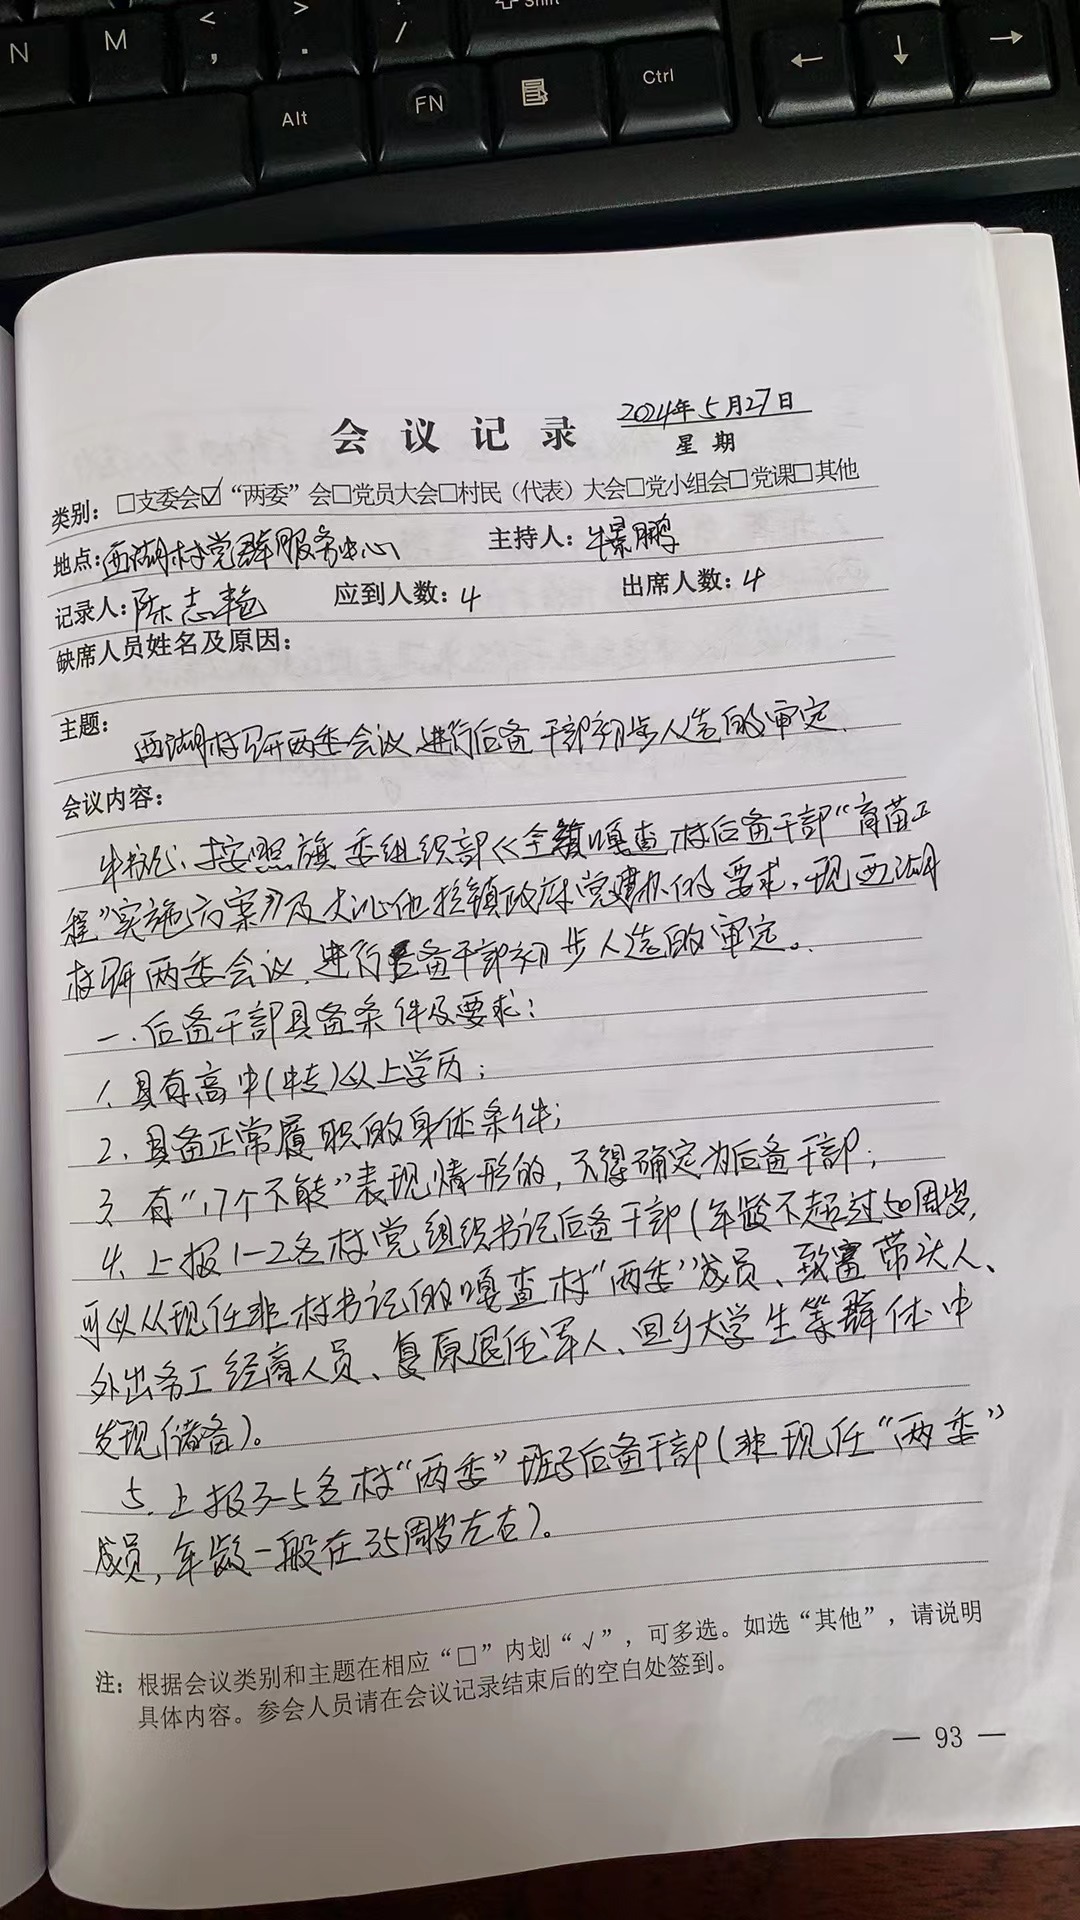 N M < , > . / Shift
Alt FN Ctrl ← ↓ →
会议记录
2024年5月27日
星期
类别：□支委会☑“两委”会□党员大会□村民（代表）大会□党小组会□党课□其他
地点：西湖村党群服务中心
主持人：牛景鹏
记录人：陈志艳
应到人数：4
出席人数：4
缺席人员姓名及原因：
主题：
西湖村召开两委会议，进行后备干部初步人选的审定.
会议内容：
牛书记：按照旗委组织部《全旗嘎查村后备干部“育苗工
程”实施方案》及大沁他拉镇政府党建办的要求，现西湖
村召开两委会议，进行后备干部初步人选的审定。
一.后备干部具备条件及要求：
1、具有高中(中专)以上学历；
2、具备正常履职的身体条件；
3、有“17个不能”表现情形的，不得确定为后备干部；
4、上报1-2名村党组织书记后备干部(年龄不超过50周岁，
可以从现任非村书记的嘎查村“两委”成员、致富带头人、
外出务工经商人员、复原退伍军人、回乡大学生等群体中
发现储备)。
5、上报3-5名村“两委”班子后备干部(非现任“两委”
成员，年龄一般在35周岁左右)。
注：根据会议类别和主题在相应“□”内划“√”，可多选。如选“其他”，请说明
具体内容。参会人员请在会议记录结束后的空白处签到。
— 93 —